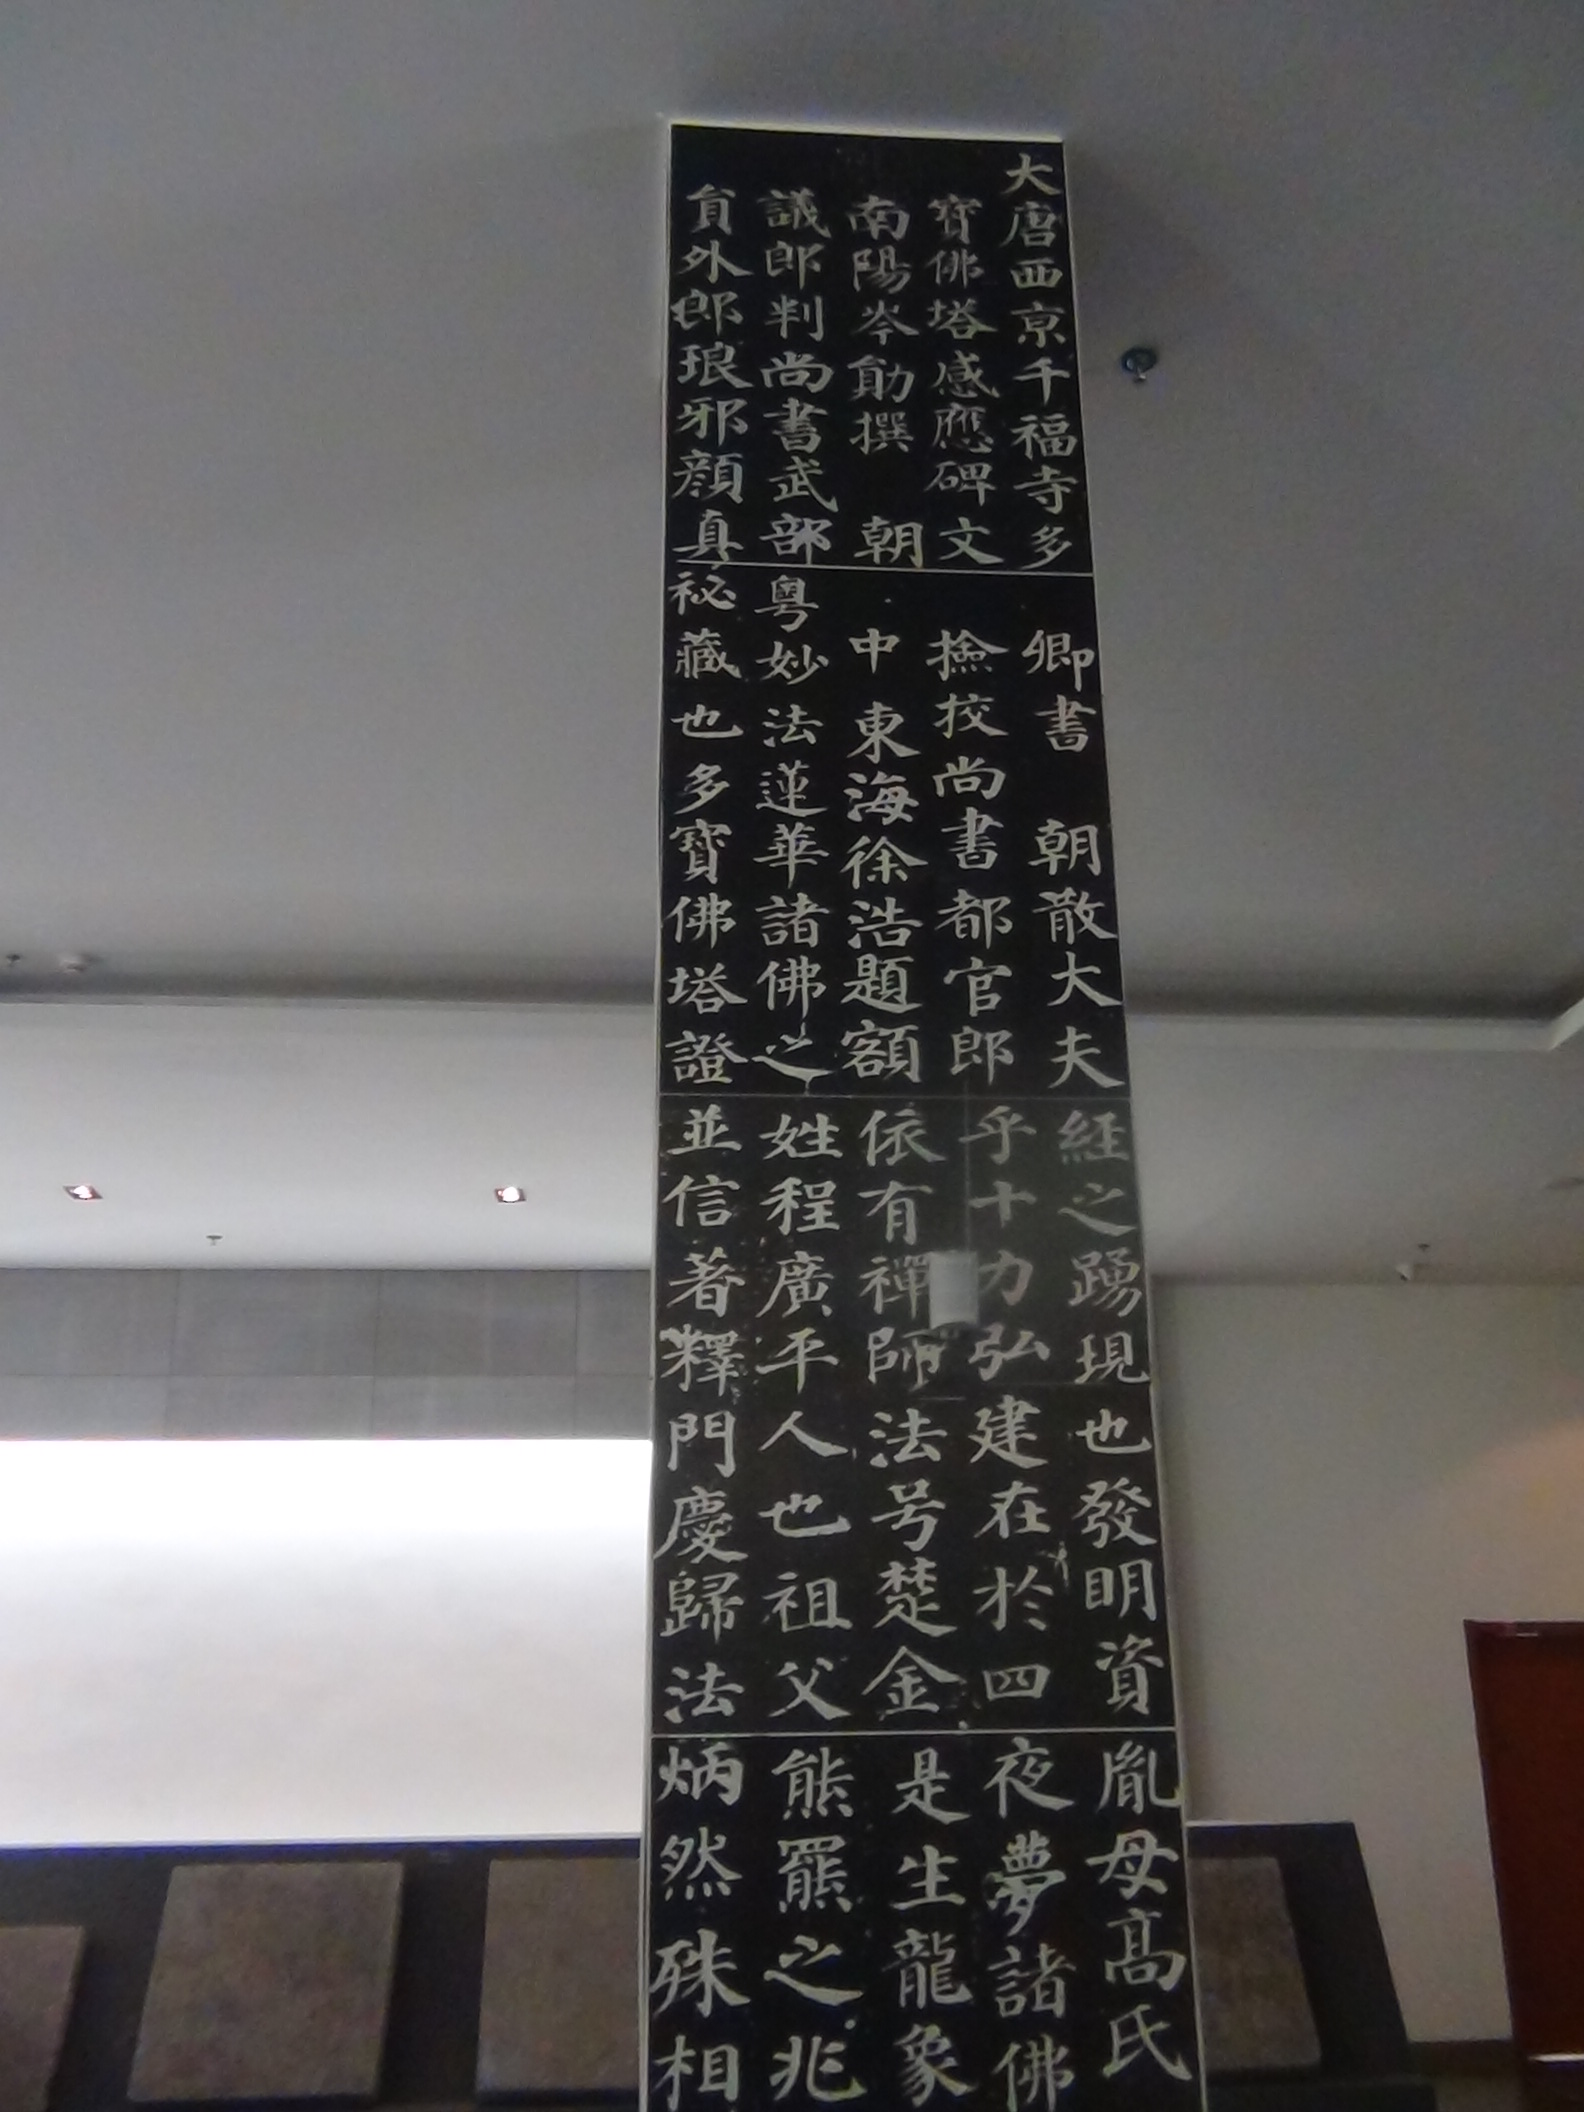 大唐西京千福寺多
寶佛塔感應碑文
南陽岑勛撰 朝
議郎判尚書武部
貟外郎琅邪顔真
卿書 朝散大夫
撿挍尚書都官郎
中東海徐浩題額
粤妙法蓮華諸佛之
祕藏也多寶佛塔證
經之踴現也發明資
乎十力弘建在於四
依有禪師法号楚金
姓程廣平人也祖父
並信著釋門慶歸法
胤母髙氏
夜夢諸佛
是生龍象
熊羆之兆
炳然殊相